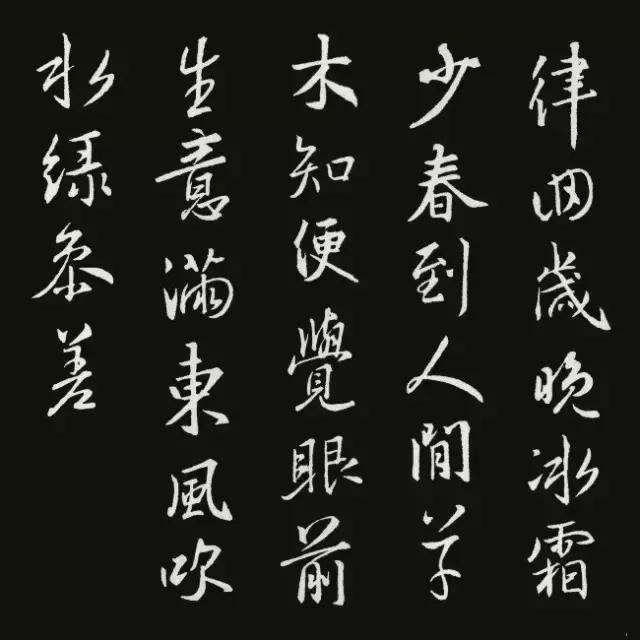 律回歲晚冰霜
少春到人間草
木知便覺眼前
生意滿東風吹
水绿參差